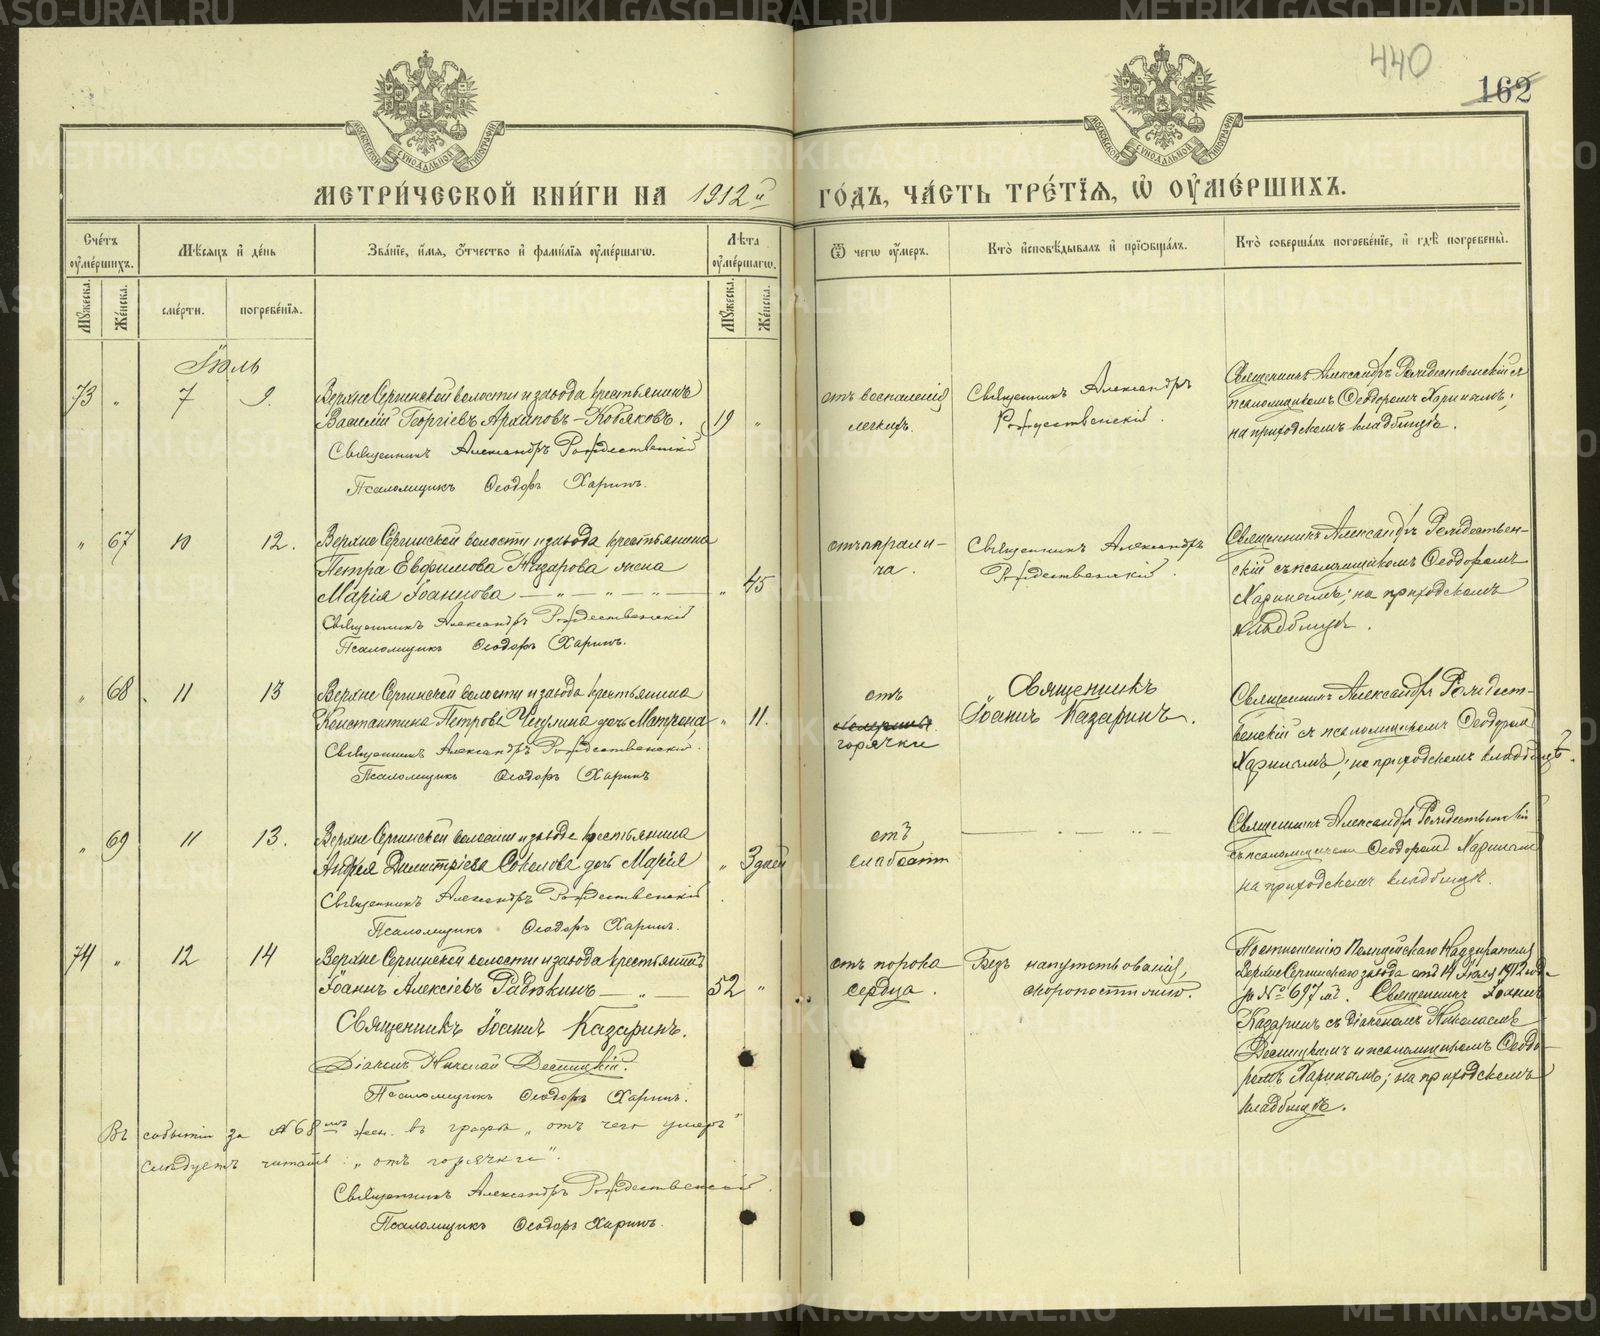 440
162
МЕТРИ́ЧЕСКОЙ КНИ́ГИ НА 1912й ГО́ДЪ, ЧА́СТЬ ТРЕ́ТIЯ, Ѡ ОУ҆МЕ́РШИХЪ.
Сче́тъ оу҆ме́ршихъ.
Мѣ́сяцъ и҆ де́нь
Зва́нїе, и҆́мя, ѻ҆́тчество и҆ фами́лїя оу҆ме́ршагѡ.
Лѣ́та оу҆ме́ршагѡ.
Ѿ чегѡ̀ оу҆́меръ.
Кто̀ и҆сповѣ́дывалъ и҆ прїѡбща́лъ.
Кто̀ соверша́лъ погребе́нїе, и҆ гдѣ̀ погребены̀.
Му́жеска.
Же́нска.
сме́рти.
погребе́нїя.
Му́жеска.
Же́нска.
Іюль
73 " 7 9. Верхне Сергинской волости и завода крестьянинъ
Василій Георгіевъ Архиповъ-Кобяковъ. 19 "
Священникъ Александръ Рождественскій
Псаломщикъ Ѳеодоръ Харинъ.
отъ воспаленія
легкихъ.
Священникъ Александръ
Рождественскій.
Священникъ Александръ Рождественскій съ
псаломщикомъ Ѳеодоромъ Харинымъ;
на приходскомъ кладбищѣ.
" 67 10 12. Верхне Сергинской волости и завода крестьянина
Петра Евфимова Назарова жена
Марія Іоаннова — " — " — " — " 45
Священникъ Александръ Рождественскій
Псаломщикъ Ѳеодоръ Харинъ.
отъ парали-
ча.
Священникъ Александръ
Рождественскій.
Священникъ Александръ Рождествен-
скій съ псаломщикомъ Ѳеодоромъ
Харинымъ; на приходскомъ
кладбищѣ.
" 68 11 13 Верхне Сергинской волости и завода крестьянина
Константина Петрова дочь Матрона, " 11.
Священникъ Александръ Рождественскій.
Псаломщикъ Ѳеодоръ Харинъ
отъ
горячки
Священникъ
Іоаннъ Казаринъ.
Священникъ Александръ Рождест-
венскій съ псаломщикомъ Ѳеодоромъ
Харинымъ; на приходскомъ кладбищѣ.
" 69 11 13. Верхне Сергинской волости и завода крестьянина
Андрея Димитріева Соколова дочь Марія " 3 дней
Священникъ Александръ Рождественскій
Псаломщикъ Ѳеодоръ Харинъ.
отъ
слабости
— " —
Священникъ Александръ Рождественскій
съ псаломщикомъ Ѳеодоромъ Харинымъ
на приходскомъ кладбищѣ.
74 " 12 14 Верхне Сергинской волости и завода крестьянинъ
Іоаннъ Алексіевъ Рябкинъ — " — 52 "
Священникъ Іоаннъ Казаринъ.
Діаконъ Николай Десницкій.
Псаломщикъ Ѳеодоръ Харинъ.
отъ порока
сердца.
Безъ напутствованія,
скоропостижно.
По отношенію Полицейскаго Надзирателя
Верхне Сергинскаго завода отъ 14 Іюля 1912 года
за № 697мъ. Священникъ Іоаннъ
Казаринъ съ діакономъ Николаемъ
Десницкимъ и псаломщикомъ Ѳеодо-
ромъ Харинымъ; на приходскомъ
кладбищѣ.
Въ событіи за № 68мъ жен. въ графѣ „отъ чего умеръ"
слѣдуетъ читать: „отъ горячки".
Священникъ Александръ Рождественскій.
Псаломщикъ Ѳеодоръ Харинъ.
METRIKI.GASO-URAL.RU